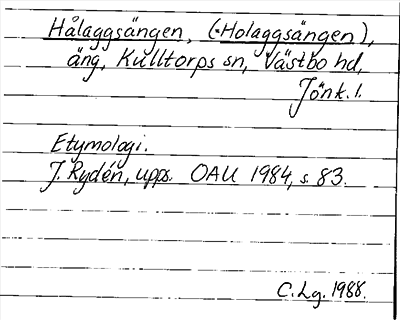 Hålaggsängen, (*Holaggsängen),
äng, Kulltorps sn, Västbo hd,
Jönk. l.
Etymologi.
J. Rydén, upps. OAU 1984, s. 83.
C. Lg. 1988.